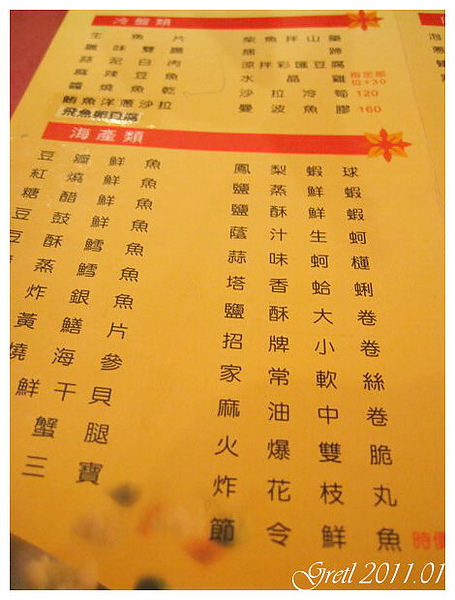 冷盤類
生魚片
滷味雙拼
蒜泥白肉
麻辣豆魚
醬燒魚乾
鮪魚洋蔥沙拉
飛魚卵豆腐
柴魚拌山藥
涼拌彩匯豆腐
水晶雞
位+30
沙拉冷筍 120
曼波魚膠 160
海產類
豆瓣鮮魚
紅燒鮮魚
糖醋鮮魚
豆鼓鮮魚
豆酥鱈魚
蒸鱈魚
炸銀魚
黃鱔片
燒海參
鮮干貝
蟹腿
三寶
鳳梨蝦球
鹽蒸鮮蝦
鹽酥鮮蝦
蔭汁生蚵
蒜味蚵
塔香蛤蜊
鹽酥大卷
招牌小卷
家常軟絲
麻油中卷
火爆雙脆
炸花枝丸
節令鮮魚 時價
Gretl 2011.01